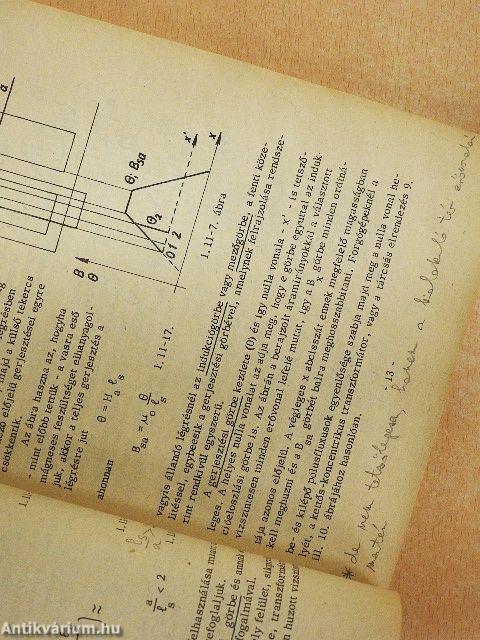 légrésben
majd a külső tekercs
ző előjelű gerjesztései egyre
csökkentik.
Az ábra haszna az, hogyha
- mint előbb tettük - a vasra eső
mágneses feszültséget elhanyagol-
juk, akkor a teljes gerjesztés a
légrésre jut
θ = H a ℓ s
ahonnan
B sa = μ o θ / ℓ s 1.11-17.
a
B
θ
θ; B δa
θ 2
x'
x
0 1 2
1.11-7. ábra
vagyis állandó légrésnél az indukciógörbe vagy mezőgörbe, a fenti köze-
lítéssel, egybeesik a gerjesztési görbével, amelynek felrajzolása rendsze-
rint rendkívül egyszerű.
A gerjesztési görbe kezdete (0) és így nulla vonala - x' - is tetsző-
leges. A helyes nulla vonalat az adja meg, hogy e görbe egyuttal az induk-
cióeloszlási görbe is. Az ábrán a berajzolt áramirányokkal a választott
vízszintesen minden erővonal lefelé mutat, így a B sa görbe minden ordiná-
tája azonos előjelű. A végleges x abcisszát ennek megfelelő magasságban
kell meghuzni és a B sa görbét balra meghosszabbítani. Forgógépeknél a
be- és kilépő pólusfluxusok egyenlősége szabja majd meg a nulla vonal he-
lyét, a kettős-koncentrikus transzformátor, vagy a tárcsás elrendezés 9.
ill. 10. ábrájához hasonlóan.
- 13 -
* de nem tetszőleges, hanem a
a / ℓ s < 2
elhasználása miatt
efoglaljuk.
görbe és annak
fogalmával.
ely felület, síkm
e, transzformá
n huzott vízszin
Antikvárium.hu